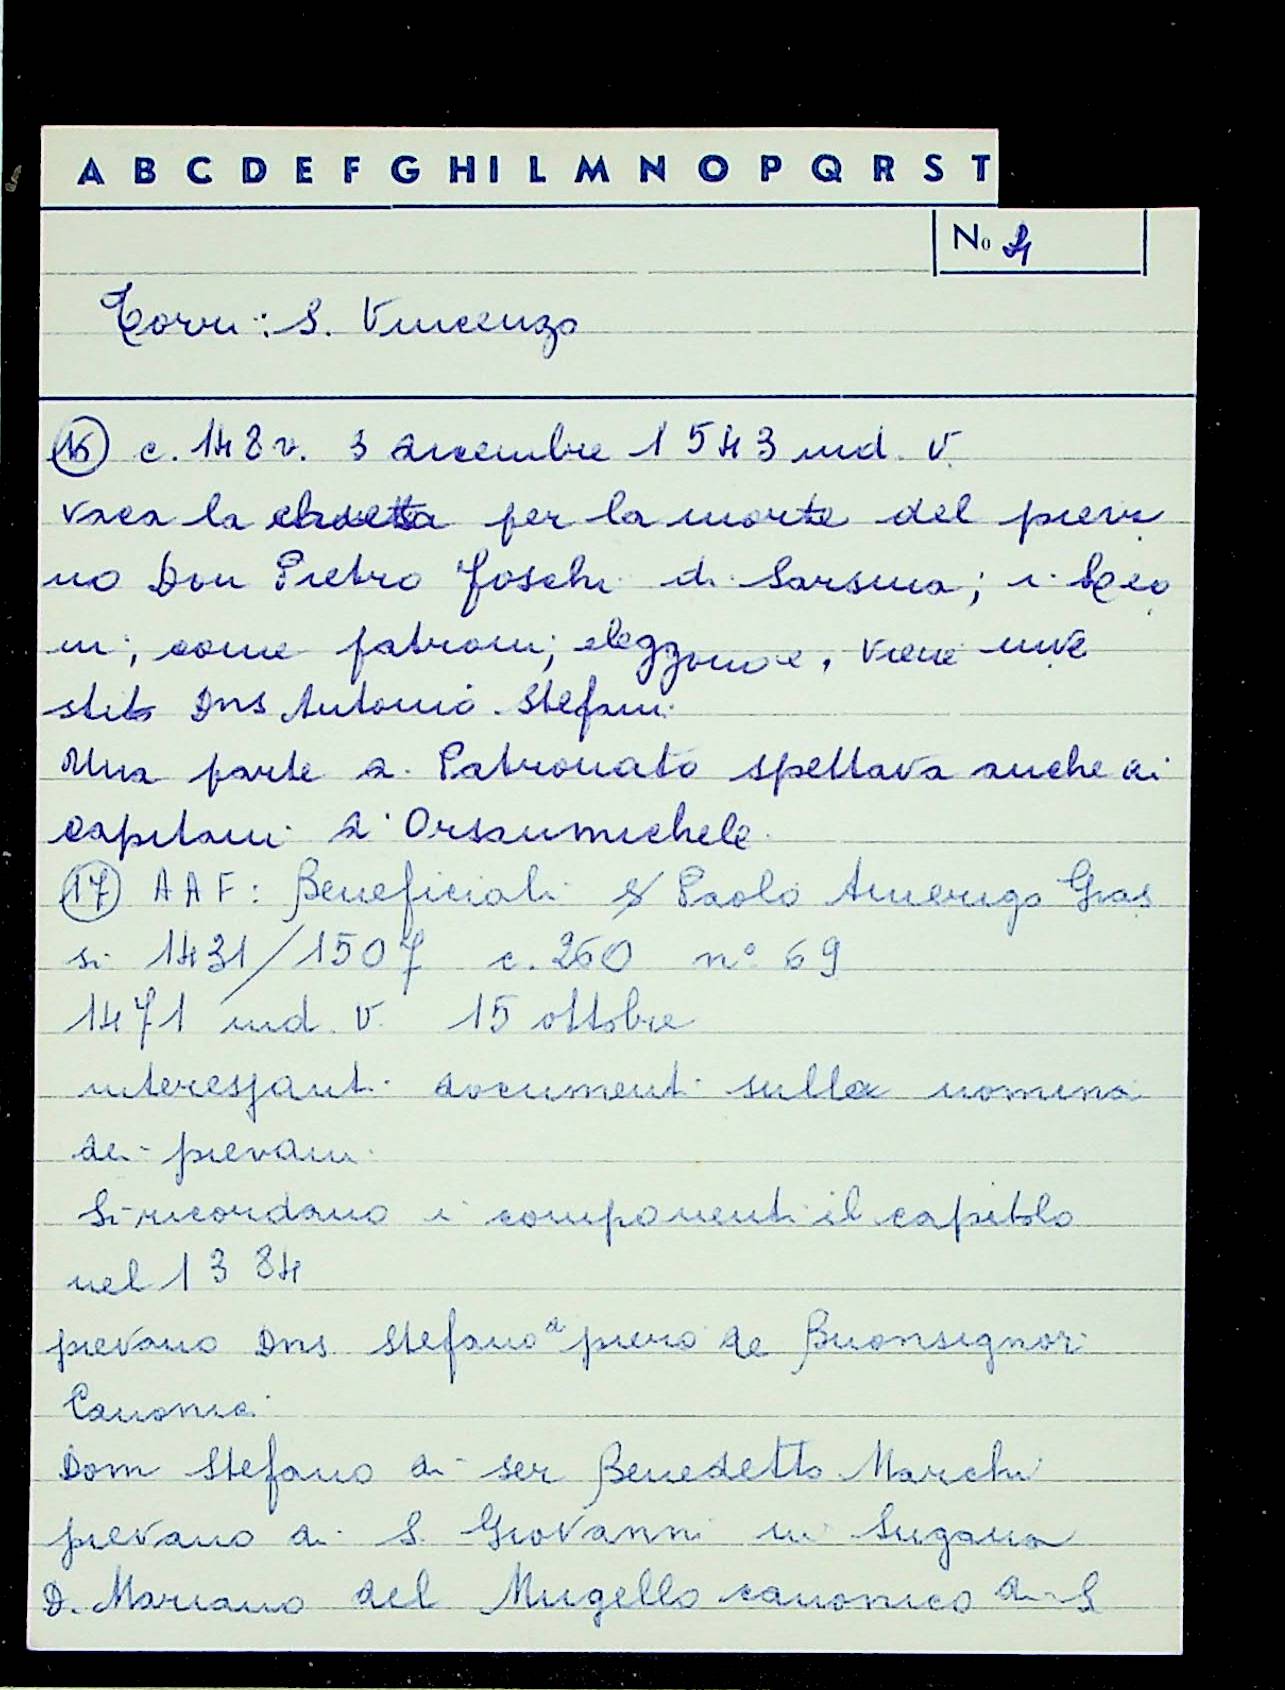 A B C D E F G H I L M N O P Q R S T
No 4
Torri: S. Vincenzo
16 c. 148 v. 3 dicembre 1543 ind. V.
vaca la per la morte del pieva
no Don Pietro Foschi di Sarsina; i
ni, come patroni, eleggono e, viene inve
stito Dns Antonio Stefani.
Una parte di Patronato spettava anche ai
capitani d'Orsanmichele.
17 AAF: Beneficiali S Paolo Amerigo Gras
si 1431/1507 c. 260 n° 69
1471 ind. V. 15 ottobre
interessanti documenti sulla nomina
dei pievani.
Si ricordano i componenti il capitolo
nel 1384
pievano Dns Stefano di piero de Buonsignori
Canonici
Dom Stefano di ser Benedetto Marchi
pievano di S. Giovanni in Sugana
D. Mariano del Mugello canonico di S